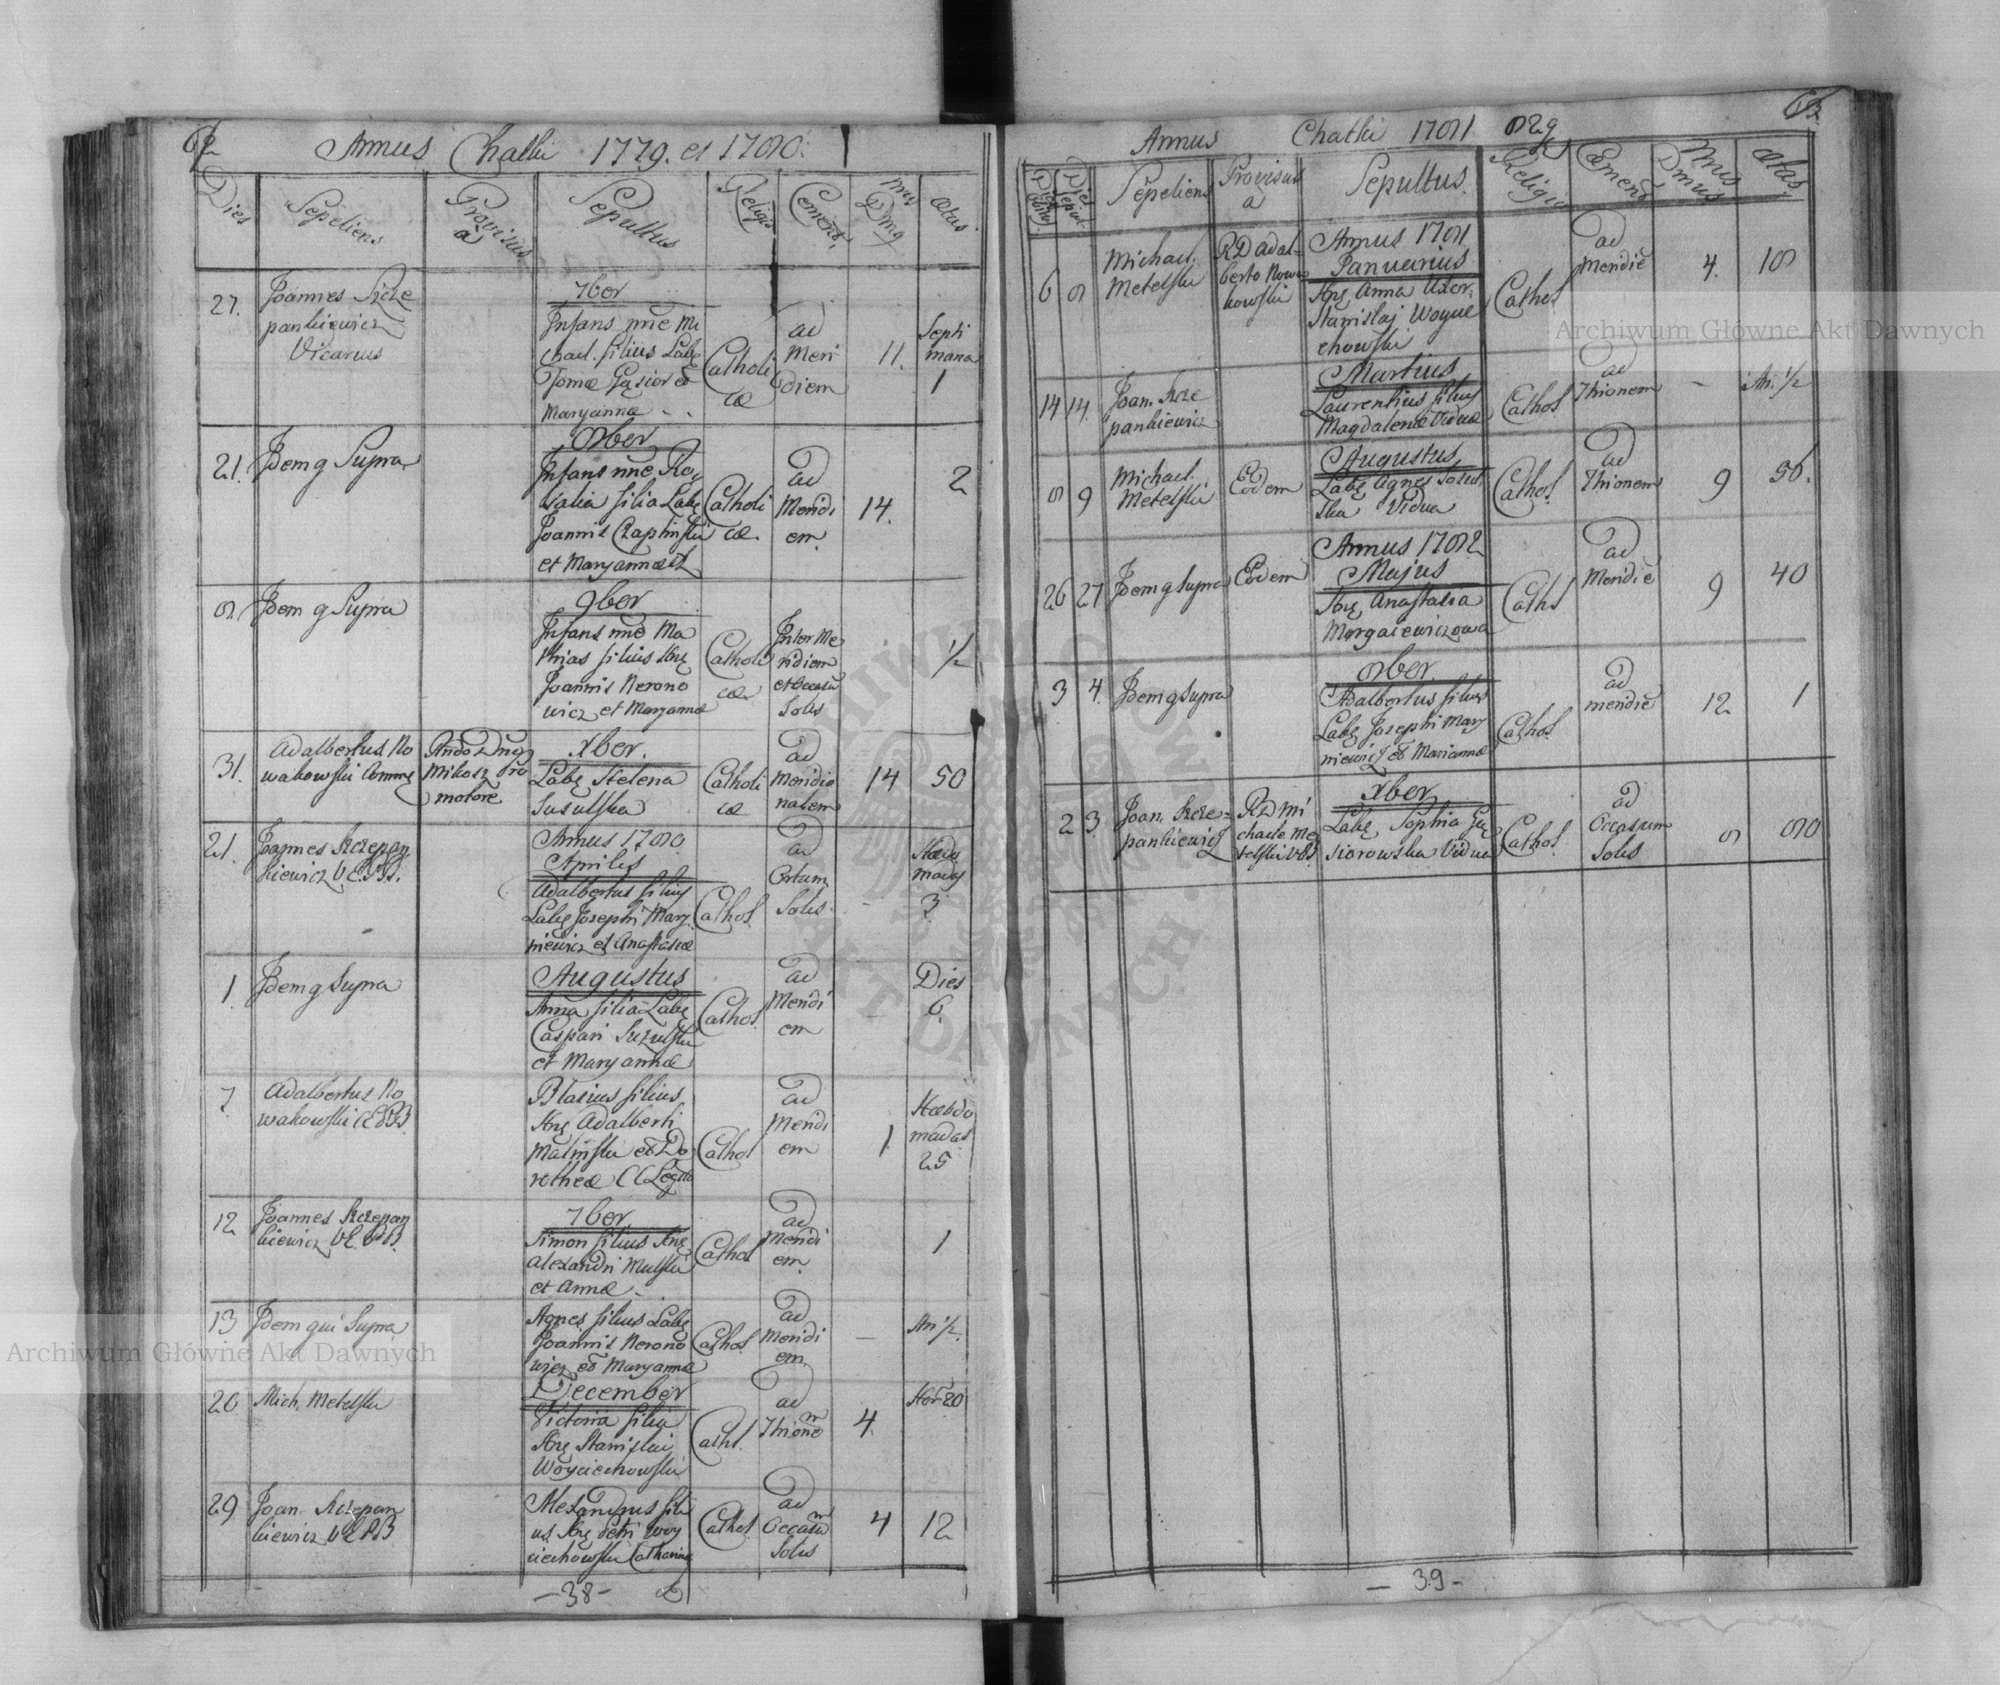 Annus Chalhi 1779. et 1780.
Dies
Sepeliens
Provisus a
Sepultus
Religio
Cement.
Nrus Dmg
Ætas
27.
Joannes Szcze
pankiewicz
Vicarius
7ber
Infans nne Mi
chael. filius Labg
Tomæ Gąsior et
Maryanna
Catholi
cæ
ad
Meri
diem
11.
Septi
mana
1
21.
Idem q Supra
8ber
Infans nne Ro
salia filia Labg
Joannis Czaplinski
et Maryannæ
Catholi
cæ
ad
Meridi
em
14.
2
8
Idem q Supra
9ber
Infans nne Ma
thias filius
Joannis Nerono
wicz et Maryannæ
Catholi
cæ
Inter Me
ridiem
et Occasũ
Solis
1/2
31.
Adalbertus No
wakowski
Mikosz Pro
motore
xber.
Labg Helena
Susulska
Catholi
cæ
ad
Meridio
nalem
14
50
21.
Joannes Szczepan
kiewicz
Annus 1780
Aprilis
Adalbertus filius
Labg Josephi Mary
niewicz et Anastasiæ
Cathol.
ad
Ortum
Solis
-
Hæbdo
madas
3
1.
Idem q Supra
Augustus
Anna filia Labg
Caspari Suzulski
et Maryannæ
Cathol.
ad
Meridi
em
-
Dies
6.
7
Adalbertus No
wakowski
Blasius filius
Adalberti
Malinski et Do
rotheæ
Cathol
ad
Meridi
em
1
Hæbdo
madas
25
12
Joannes Szczepan
kiewicz
7ber
Simon filius
Alexandri Mulski
et Annæ
Cathol
ad
Meridi
em
1
13
Idem qui Supra
Agnes filius Labg
Joannis Nerono
wicz et Maryannæ
Cathol
ad
Meridi
em
-
An 1/2.
20
Mich. Metelski
December
Victoria filia
Stanislai
Woyciechowski
Cathl.
ad
Thionem
4.
Hor 20
29
Joan. Szczepan
kiewicz
Alexandrus fili
us Petri Woy
ciechowski Catharinæ
Cathol
ad
Occasum
Solis
4
12
-38-
Annus Chalhi 1781 829
63.
Sepeliens
Provisus
a
Sepultus.
Religio
Cmend
Nrus
Dmus
Ætas
6
8
Michael.
Metelski
RD Adal-
berto Nowa
kowski
Annus 1781
Januarius
Anna Uxor
Stanislaj Woycie
chowski
Cathol
ad
Meridiē
4.
18
14
14
Joan. Szcze
pankiewicz
Martius
Laurentius filius
Magdalenæ Viduæ
Cathol
ad
Thionem
-
An. 1/2
8
9
Michael.
Metelski
Eodem
Augustus
Labg Agnes Sosul
ska Vidua
Cathol.
ad
Thionem
9
56.
26
27
Idem q Supra
Eodem
Annus 1782
Majus
Anastasia
Morgaiewiczowa
Cathl
ad
Meridiē
9
40
3
4.
Idem q Supra
8ber.
Adalbertus filius
Labg Josephi Mary
niewicz et Mariannæ
Cathol.
ad
meridiē
12
1
2
3
Joan. Szcze=
pankiewicz
RD Mi
chaele Me
telski
xber
Labg Sophia Gą
siorowska Vidua
Cathol.
ad
Occasum
Solis
8
80
-39-
Archiwum Główne Akt Dawnych
Archiwum Główne Akt Dawnych